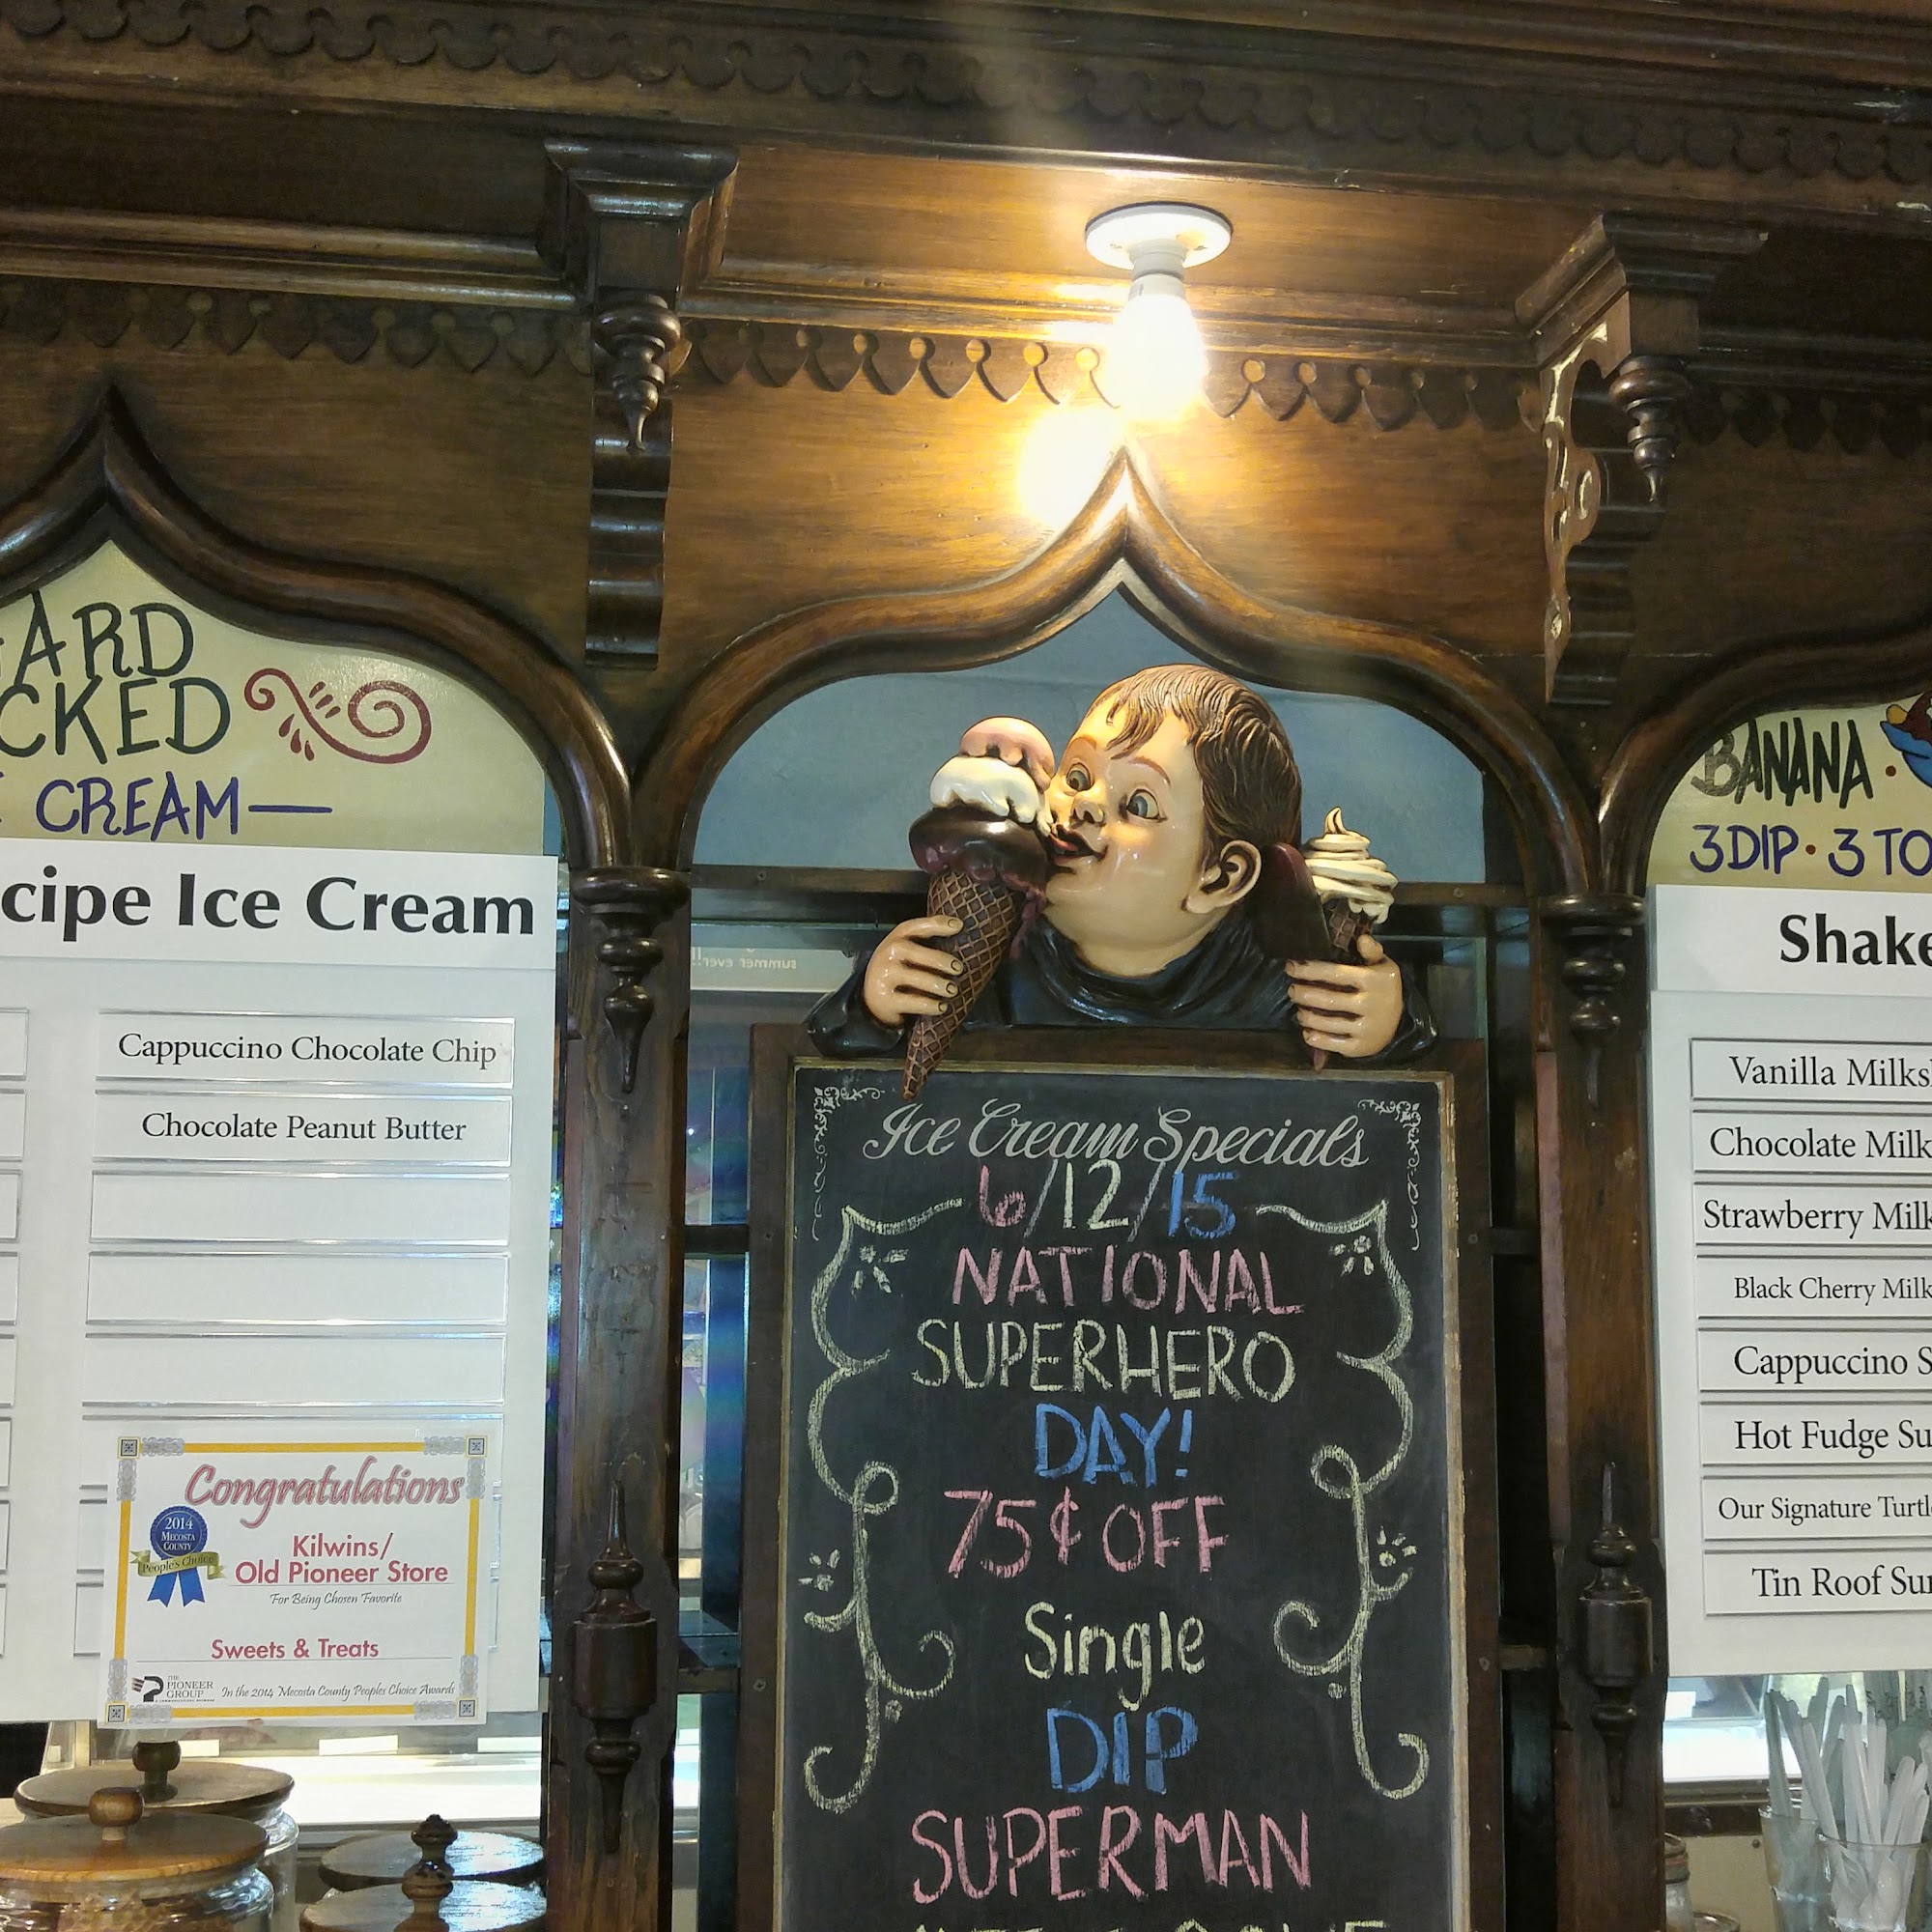 ARD
CKED
CREAM
cipe Ice Cream
Cappuccino Chocolate Chip
Chocolate Peanut Butter
Congratulations
2014
MECOSTA
COUNTY
People's Choice
Kilwins/
Old Pioneer Store
For Being Chosen Favorite
Sweets & Treats
THE
PIONEER
GROUP
In the 2014 Mecosta County Peoples Choice Awards
summer ever!!
Ice Cream Specials
6/12/15
NATIONAL
SUPERHERO
DAY!
75¢ OFF
Single
DIP
SUPERMAN
BANANA •
3 DIP • 3 TO
Shake
Vanilla Milks
Chocolate Milk
Strawberry Milk
Black Cherry Milk
Cappuccino S
Hot Fudge Su
Our Signature Turtl
Tin Roof Sun